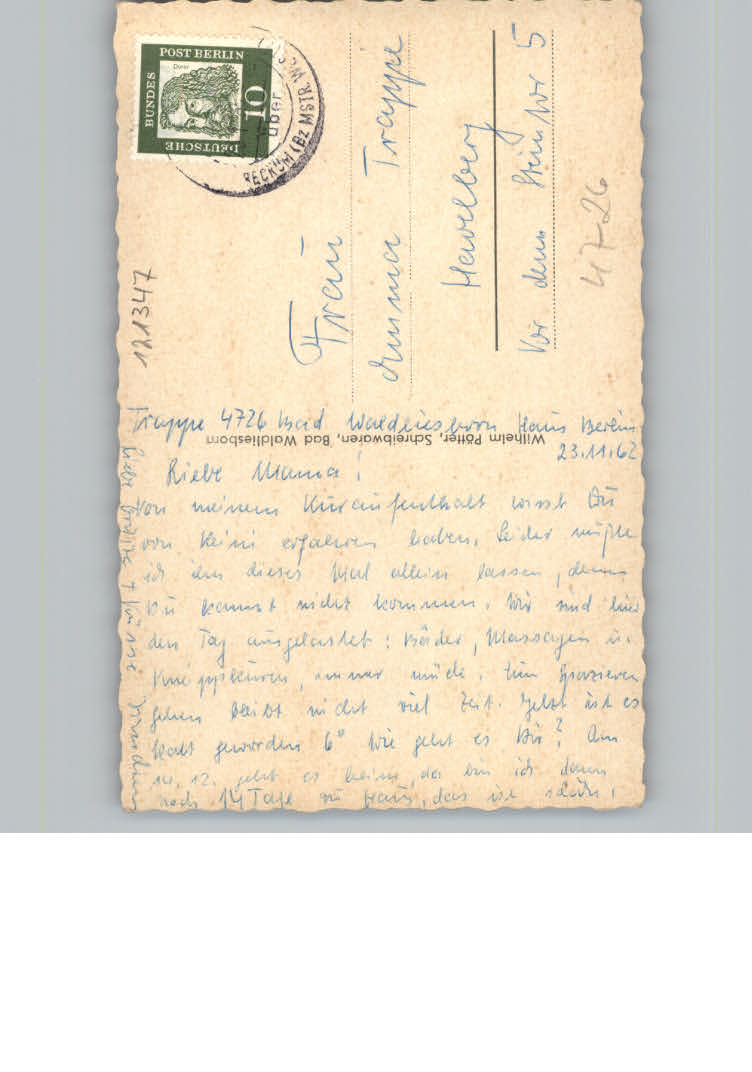 DEUTSCHE
BUNDES
POST BERLIN
Dürer
10
über
BECKUM (BZ MSTR. W
121347
Frau
Emma Trappe
Havelberg
Vor dem Steintor 5
4726
Wilhelm Pötter, Schreibwaren, Bad Waldliesborn
Trappe 4726 Bad Waldliesborn Haus Berlin
23.11.62
Liebe Mama!
Von meinem Kuraufenthalt wirst Du
von Heini erfahren haben. Leider mußte
ich ihn dieses Mal allein lassen, denn
Du kannst nicht kommen. Wir sind hier
den Tag ausgelastet: Bäder, Massagen u.
Kneippkuren, immer müde. Zum Spazieren
gehen bleibt nicht viel Zeit. Jetzt ist es
kalt geworden 6° Wie geht es Dir? Am
12. geht es heim, da bin ich dann
noch 14 Tage zu Haus, das ist schön!
Liebe Grüße + Küsse